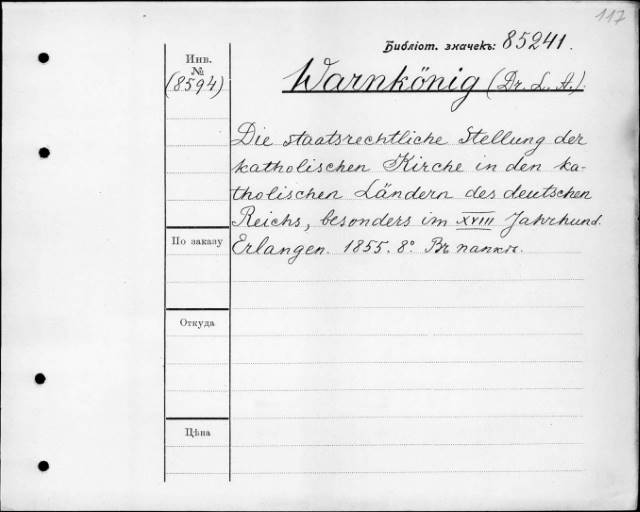 117
Библіот. значекъ: 85241.
Инв.
№
(8594)
Warnkönig (Dr. L. A.).
Die staatsrechtliche Stellung der
katholischen Kirche in den ka-
tholischen Ländern des deutschen
Reichs, besonders im XVIII Jahrhund.
Erlangen. 1855. 8° Въ папкѣ.
По заказу
Откуда
Цѣна